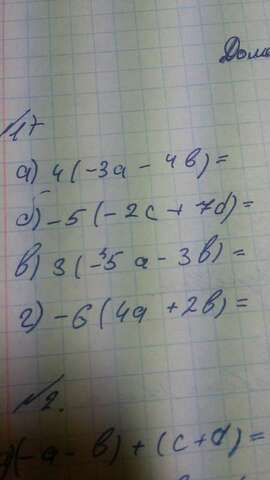 Дома
№1т
а) 4(-3а - 4в)=
б) -5(-2с + 7d)=
в) 3(-5а - 3в)=
г) -6(4а + 2в)=
№2.
(-а - в) + (с+d)=